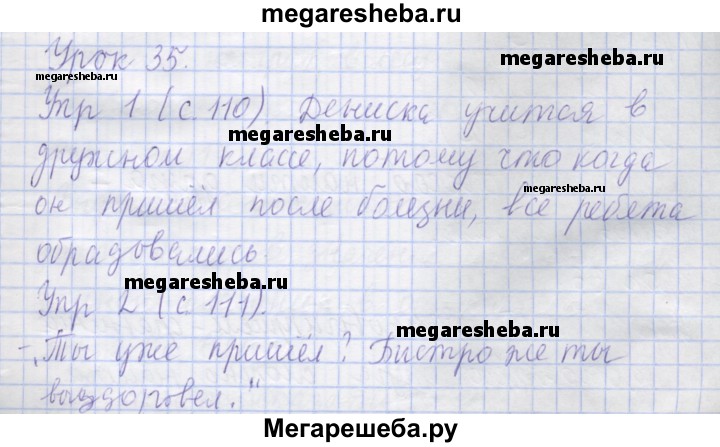 megaresheba.ru
Урок 35.
megaresheba.ru
megaresheba.ru
Упр 1 (с. 110). Дениска учится в
megaresheba.ru
дружном классе, потому что когда
megaresheba.ru
он пришёл после болезни, все ребята
обрадовались.
megaresheba.ru
Упр 2 (с. 111).
megaresheba.ru
-„Ты уже пришёл? Быстро же ты
выздоровел."
Мегарешеба.ру